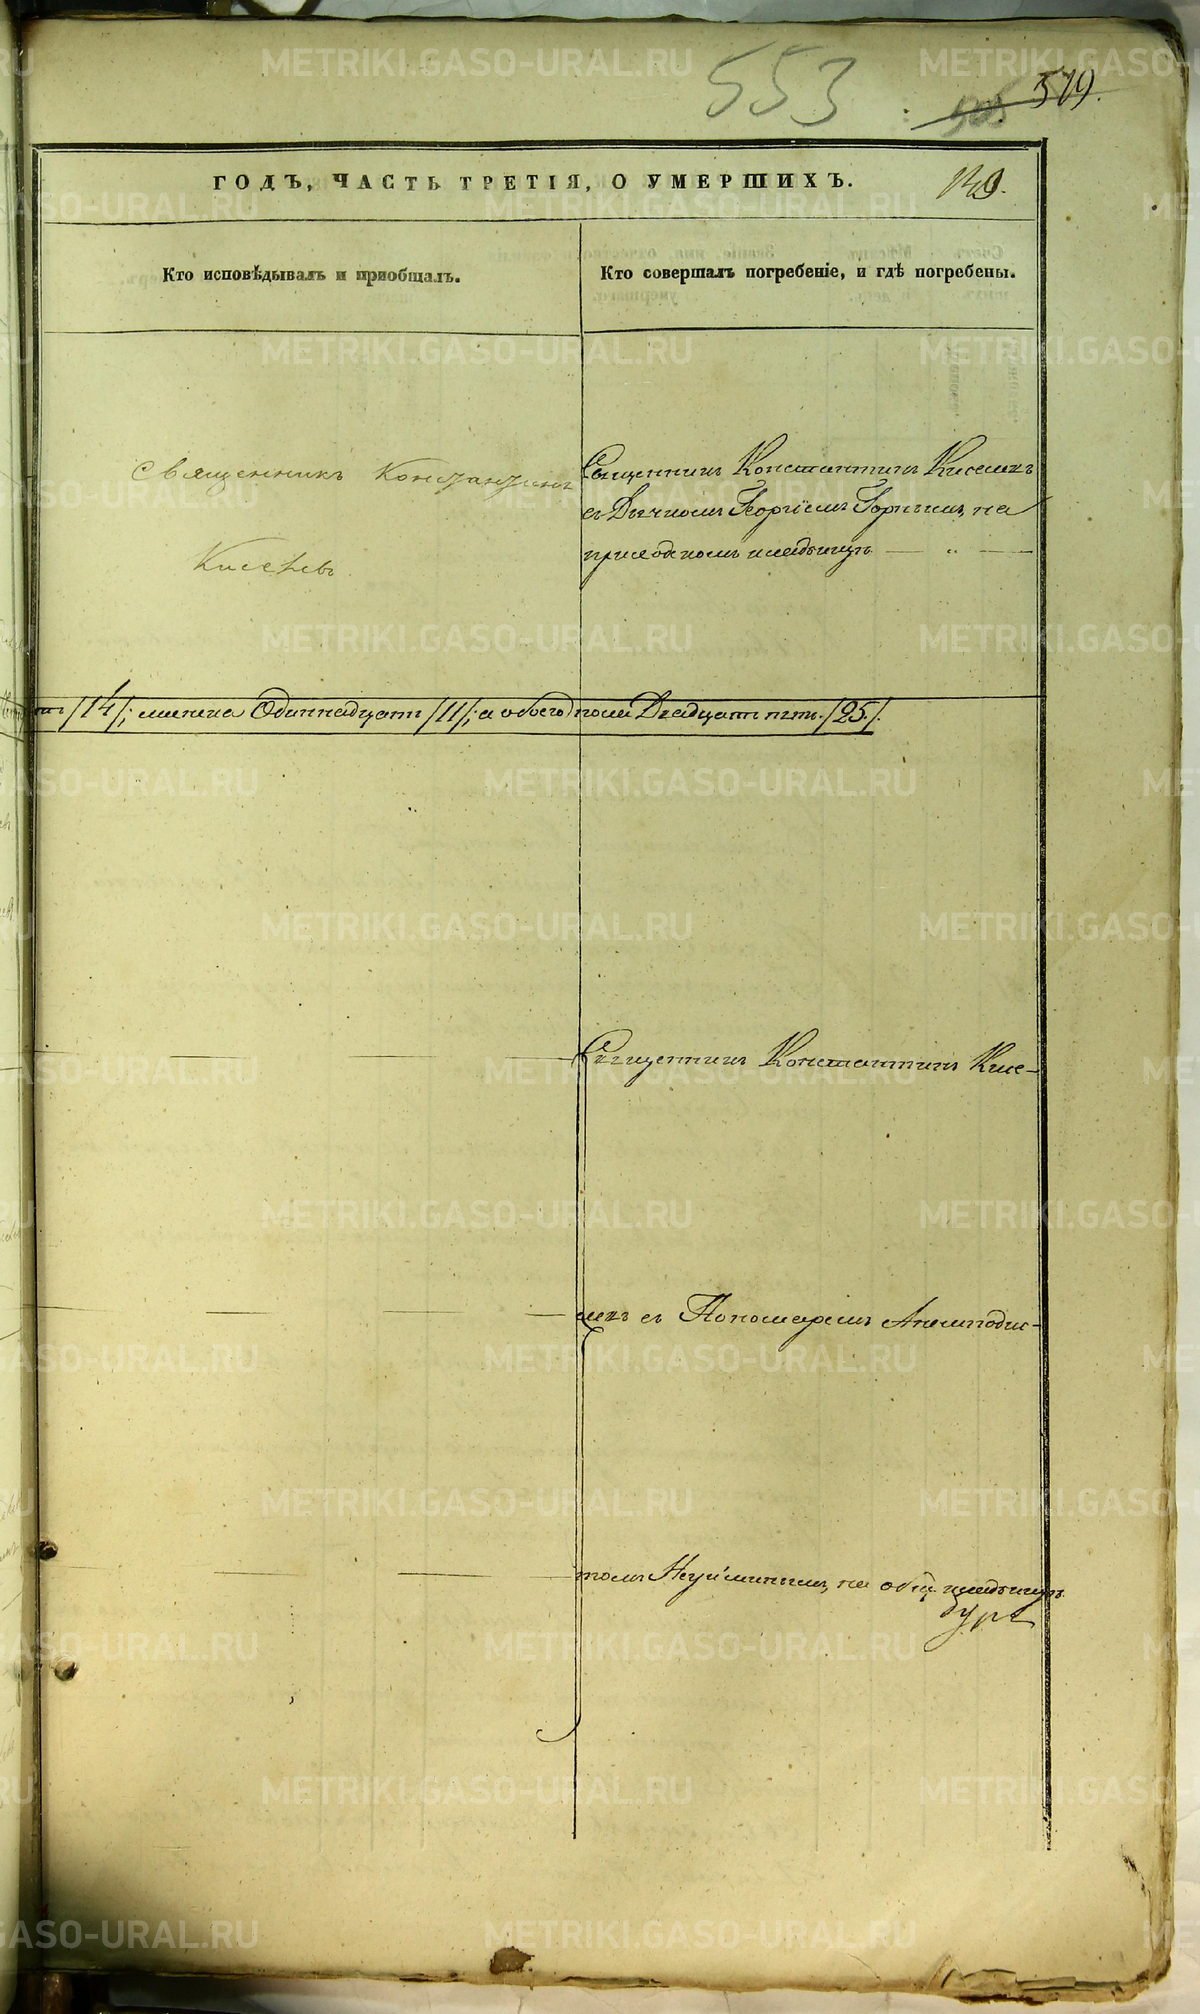 553
519.
ГОДЪ, ЧАСТЬ ТРЕТІЯ, О УМЕРШИХЪ.
Кто исповѣдывалъ и пріобщалъ.
Кто совершалъ погребеніе, и гдѣ погребены.
Священникъ Константинъ
Киселевъ
Священникъ Константинъ Киселевъ
съ Дьячкомъ Георгіемъ Горныхъ, на
приходскомъ кладбищѣ
/14/; женска Одиннадцать /11/; а обоего пола Двадцать пять. /25./.
Священникъ Константинъ Кисе-
левъ съ Пономаремъ Анемподис-
томъ Неуйминымъ, на общ. кладбищѣ
METRIKI.GASO-URAL.RU